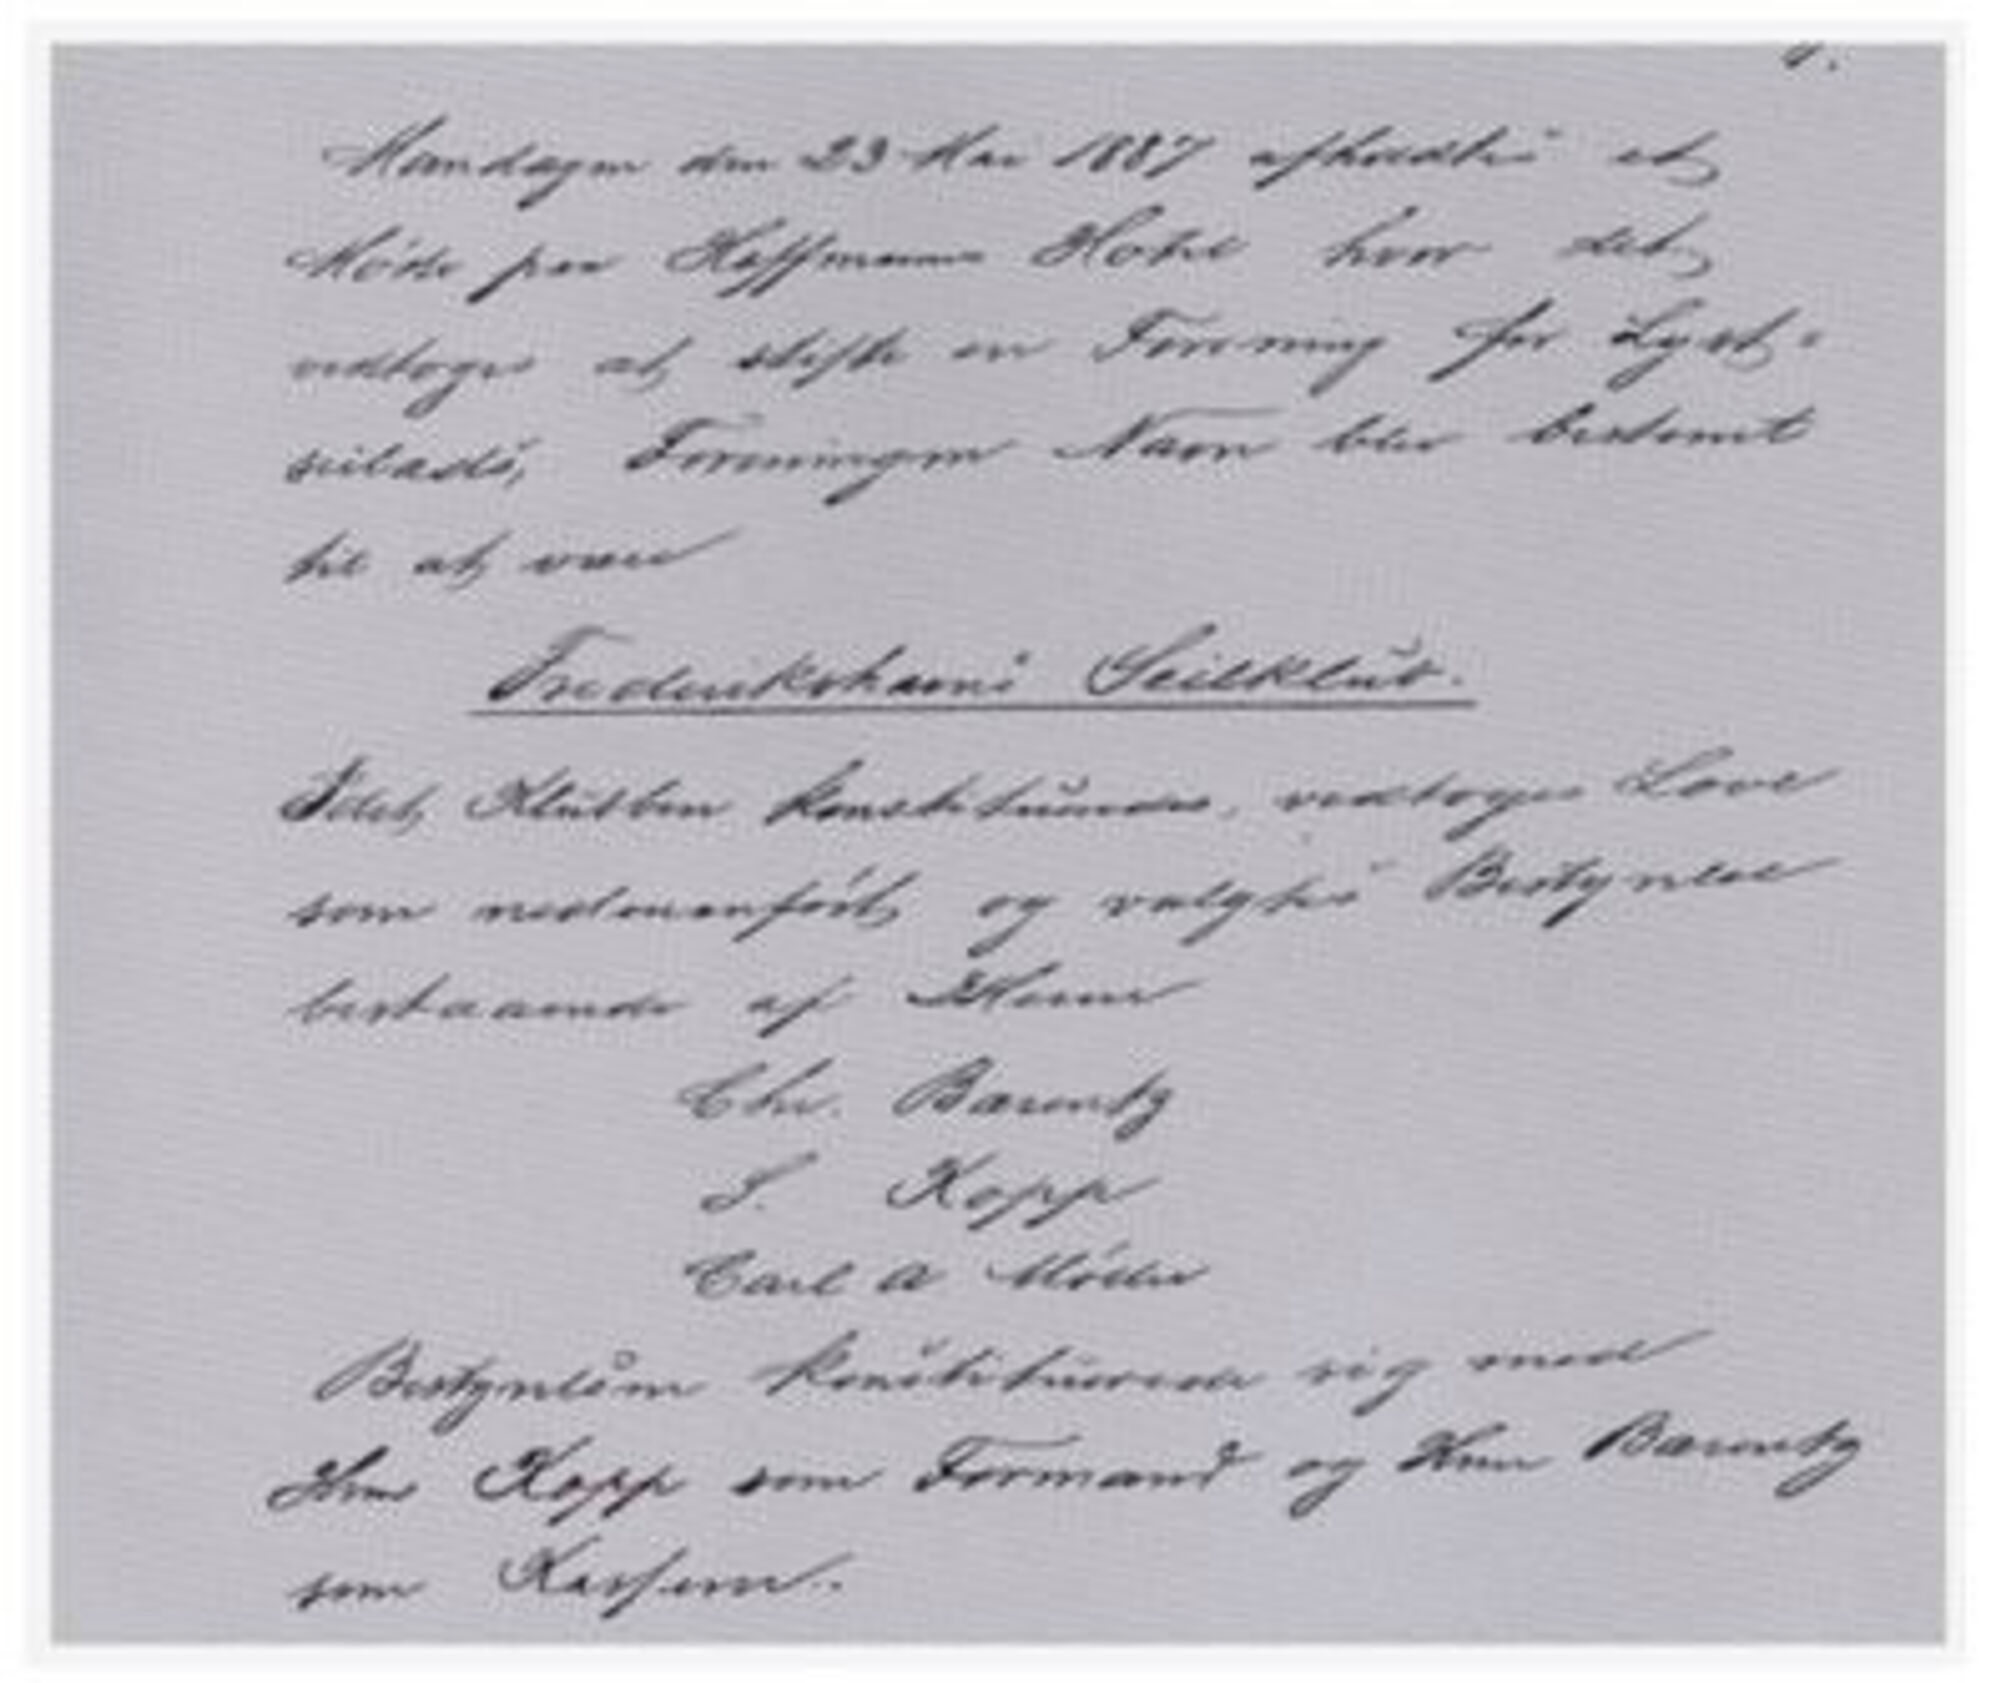 Mandagen den 23 Mai 1887 afholdtes et
Møde paa Hoffmanns Hotel hvor det
vedtoges at stifte en Forening for Lyst-
seilads, Foreningens Navn blev bestemt
til at være
Frederikshavns Seilklub.
Idet Klubben konstitueredes, vedtoges Love
som nedenanført og valgtes Bestyrelse
bestaaende af Herrer
Chr. Bærentz
S. Kopp
Carl A Møller
Bestyrelsen konstituerede sig med
Herr Kopp som Formand og Herr Bærentz
som Kasserer.